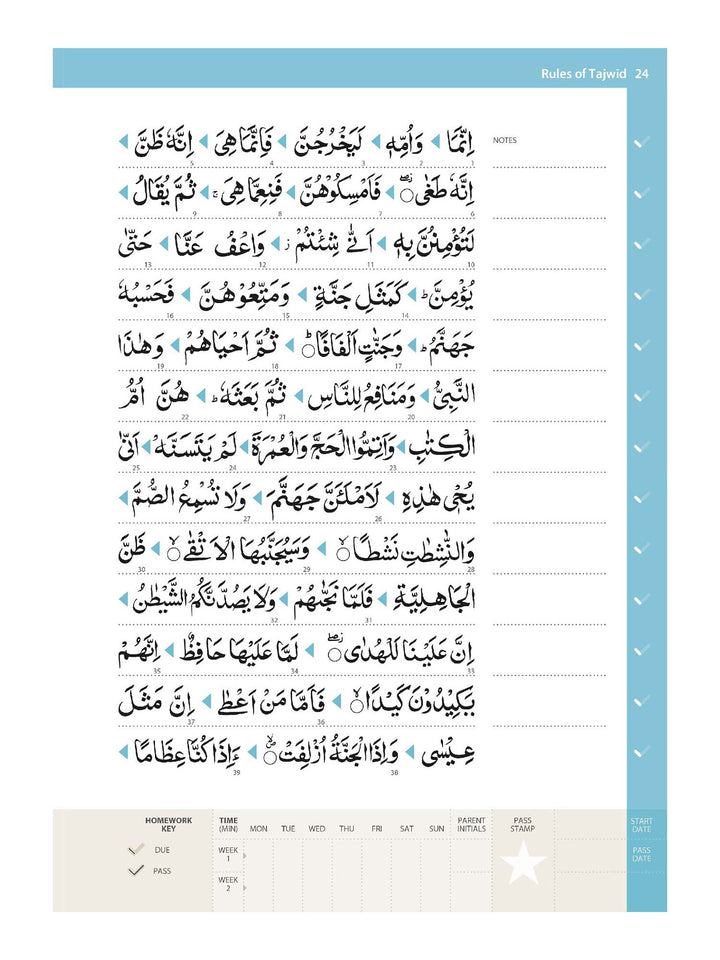 Rules of Tajwīd 24
NOTES
اِنَّمَا ◂ وَاُمِّهٖ ◂ لَيَخْرُجُنَّ ◂ فَاِنَّمَا هِيَ ◂ اِنَّهٗ ظَنَّ ◂
1 2 3 4 5
اِنَّهٗ طَغٰى ◂ فَاَمْسِكُوْهُنَّ ◂ فَنِعِمَّا هِيَ ۚ ◂ ثُمَّ يُقَالُ
6 7 8 9
لَتُؤْمِنُنَّ بِهٖ ◂ اَنّٰى شِئْتُمْ ز ◂ وَاعْفُ عَنَّا ◂ حَتّٰى
10 11 12 13
يُؤْمِنَّ ط ◂ كَمَثَلِ جَنَّةٍ ◂ وَمَتِّعُوْهُنَّ ◂ فَحَسْبُهٗ
14 15 16
جَهَنَّمُ ط ◂ وَجَنّٰتٍ اَلْفَافًا ط ◂ ثُمَّ اَحْيَاهُمْ ◂ وَهٰذَا
17 18 19
النَّبِيُّ ◂ وَمَنَافِعُ لِلنَّاسِ ◂ ثُمَّ بَعَثَهٗ ط ◂ هُنَّ اُمُّ
20 21 22
الْكِتٰبِ ◂ وَاَتِمُّوا الْحَجَّ وَالْعُمْرَةَ ◂ لَمْ يَتَسَنَّهْ ◂ اَنّٰى
23 24 25
يُحْيٖ هٰذِهِ ◂ لَاَمْلَئَنَّ جَهَنَّمَ ◂ وَلَا تُسْمِعُ الصُّمَّ ◂
26 27
وَالنّٰشِطٰتِ نَشْطًا ۙ ◂ وَسَيُجَنَّبُهَا الْاَتْقٰى ۙ ◂ ظَنَّ
28 29 30
الْجَاهِلِيَّةِ ◂ فَلَمَّا نَجّٰىهُمْ ◂ وَلَا يَصُدَّنَّكُمُ الشَّيْطٰنُ ◂
31 32
اِنَّ عَلَيْنَا لَلْهُدٰى ◂ لَمَّا عَلَيْهَا حَافِظٌ ◂ اِنَّهُمْ
33 34 35
يَكِيْدُوْنَ كَيْدًا ۙ ◂ فَاَمَّا مَنْ اَعْطٰى ◂ اِنَّ مَثَلَ
36 37
عِيْسٰى ◂ وَاِذَا الْجَنَّةُ اُزْلِفَتْ ◂ ءَاِذَا كُنَّا عِظَامًا ◂
38 39
HOMEWORK KEY
DUE
PASS
TIME (MIN) MON TUE WED THU FRI SAT SUN PARENT INITIALS PASS STAMP START DATE
WEEK 1
PASS DATE
WEEK 2